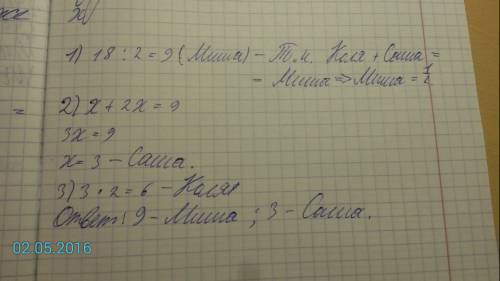 1) 18 : 2 = 9 (Миша) – Т.к. Коля + Саша =
= Миша ⇒ Миша = 1/2
2) x + 2x = 9
3x = 9
x = 3 – Саша.
3) 3 · 2 = 6 – Коля
Ответ: 9 – Миша ; 3 – Саша.
02.05.2016